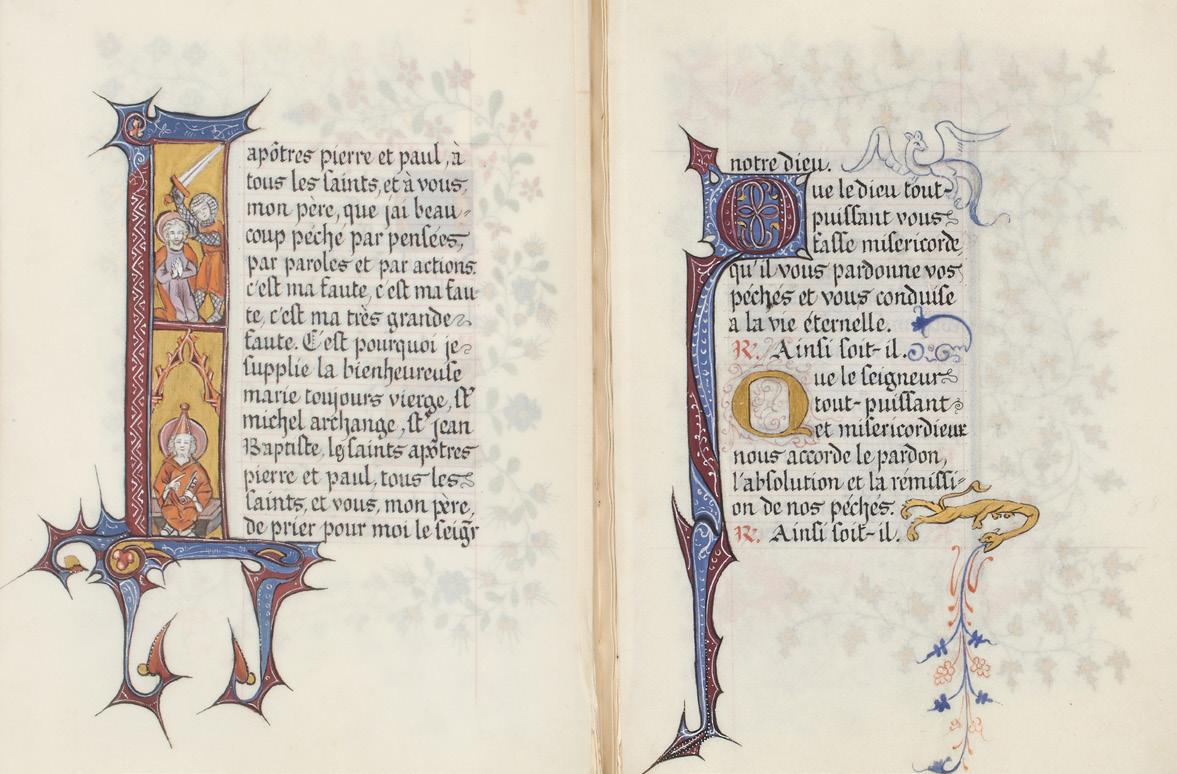 apôtres pierre et paul, à
tous les saints, et à vous,
mon père, que jai beau-
coup péché par pensées,
par paroles et par actions.
c'est ma faute, c'est ma fau
te, c'est ma très grande
faute. C'est pourquoi je
supplie la bienheureuse
marie toujours vierge, st
michel archange, st jean
Baptiste, les saints apôtres
pierre et paul, tous les
saints, et vous, mon père,
de prier pour moi le seigr
notre dieu.
Que le dieu tout-
puissant vous
fasse misericorde,
qu'il vous pardonne vos
péchés et vous conduise
a la vie éternelle.
R. Ainsi soit-il.
Que le seigneur
tout-puissant
et misericordieux
nous accorde le pardon,
l'absolution et la rémissi-
on de nos péchés.
R. Ainsi soit-il.